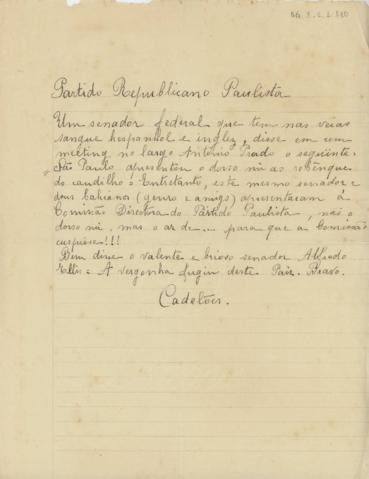 Partido Republicano Paulista
Um senador federal que tem nas veias
sangue hespanhol e inglez, disse em um
meeting no largo Antonio Prado o seguinte:
São Paulo apresentou o dorso nú ao rebenque
do caudilho. Entretanto, este mesmo senador e
dous bahiana (genro e amigo) apresentaram á
Commisão Directora do Partido Paulista, não o
dorso nú, mas o ar de.... para que a Comissão
cuspisse!!!
Bem disse o valente e brioso senador Alfredo
Ellis: A vergonha fugiu deste Paiz. Bravo.
Cadetões.